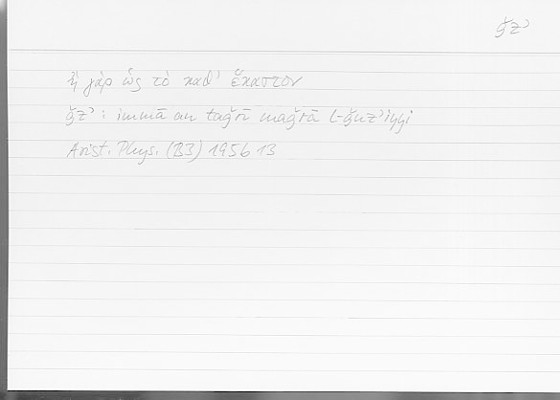 ǧzʾ
ἢ γὰρ ὡς τὸ καθ' ἕκαστον
ǧzʾ : immā an taǧrī maǧrā l-ǧuzʾiyyi
Arist. Phys. (B3) 195b 13